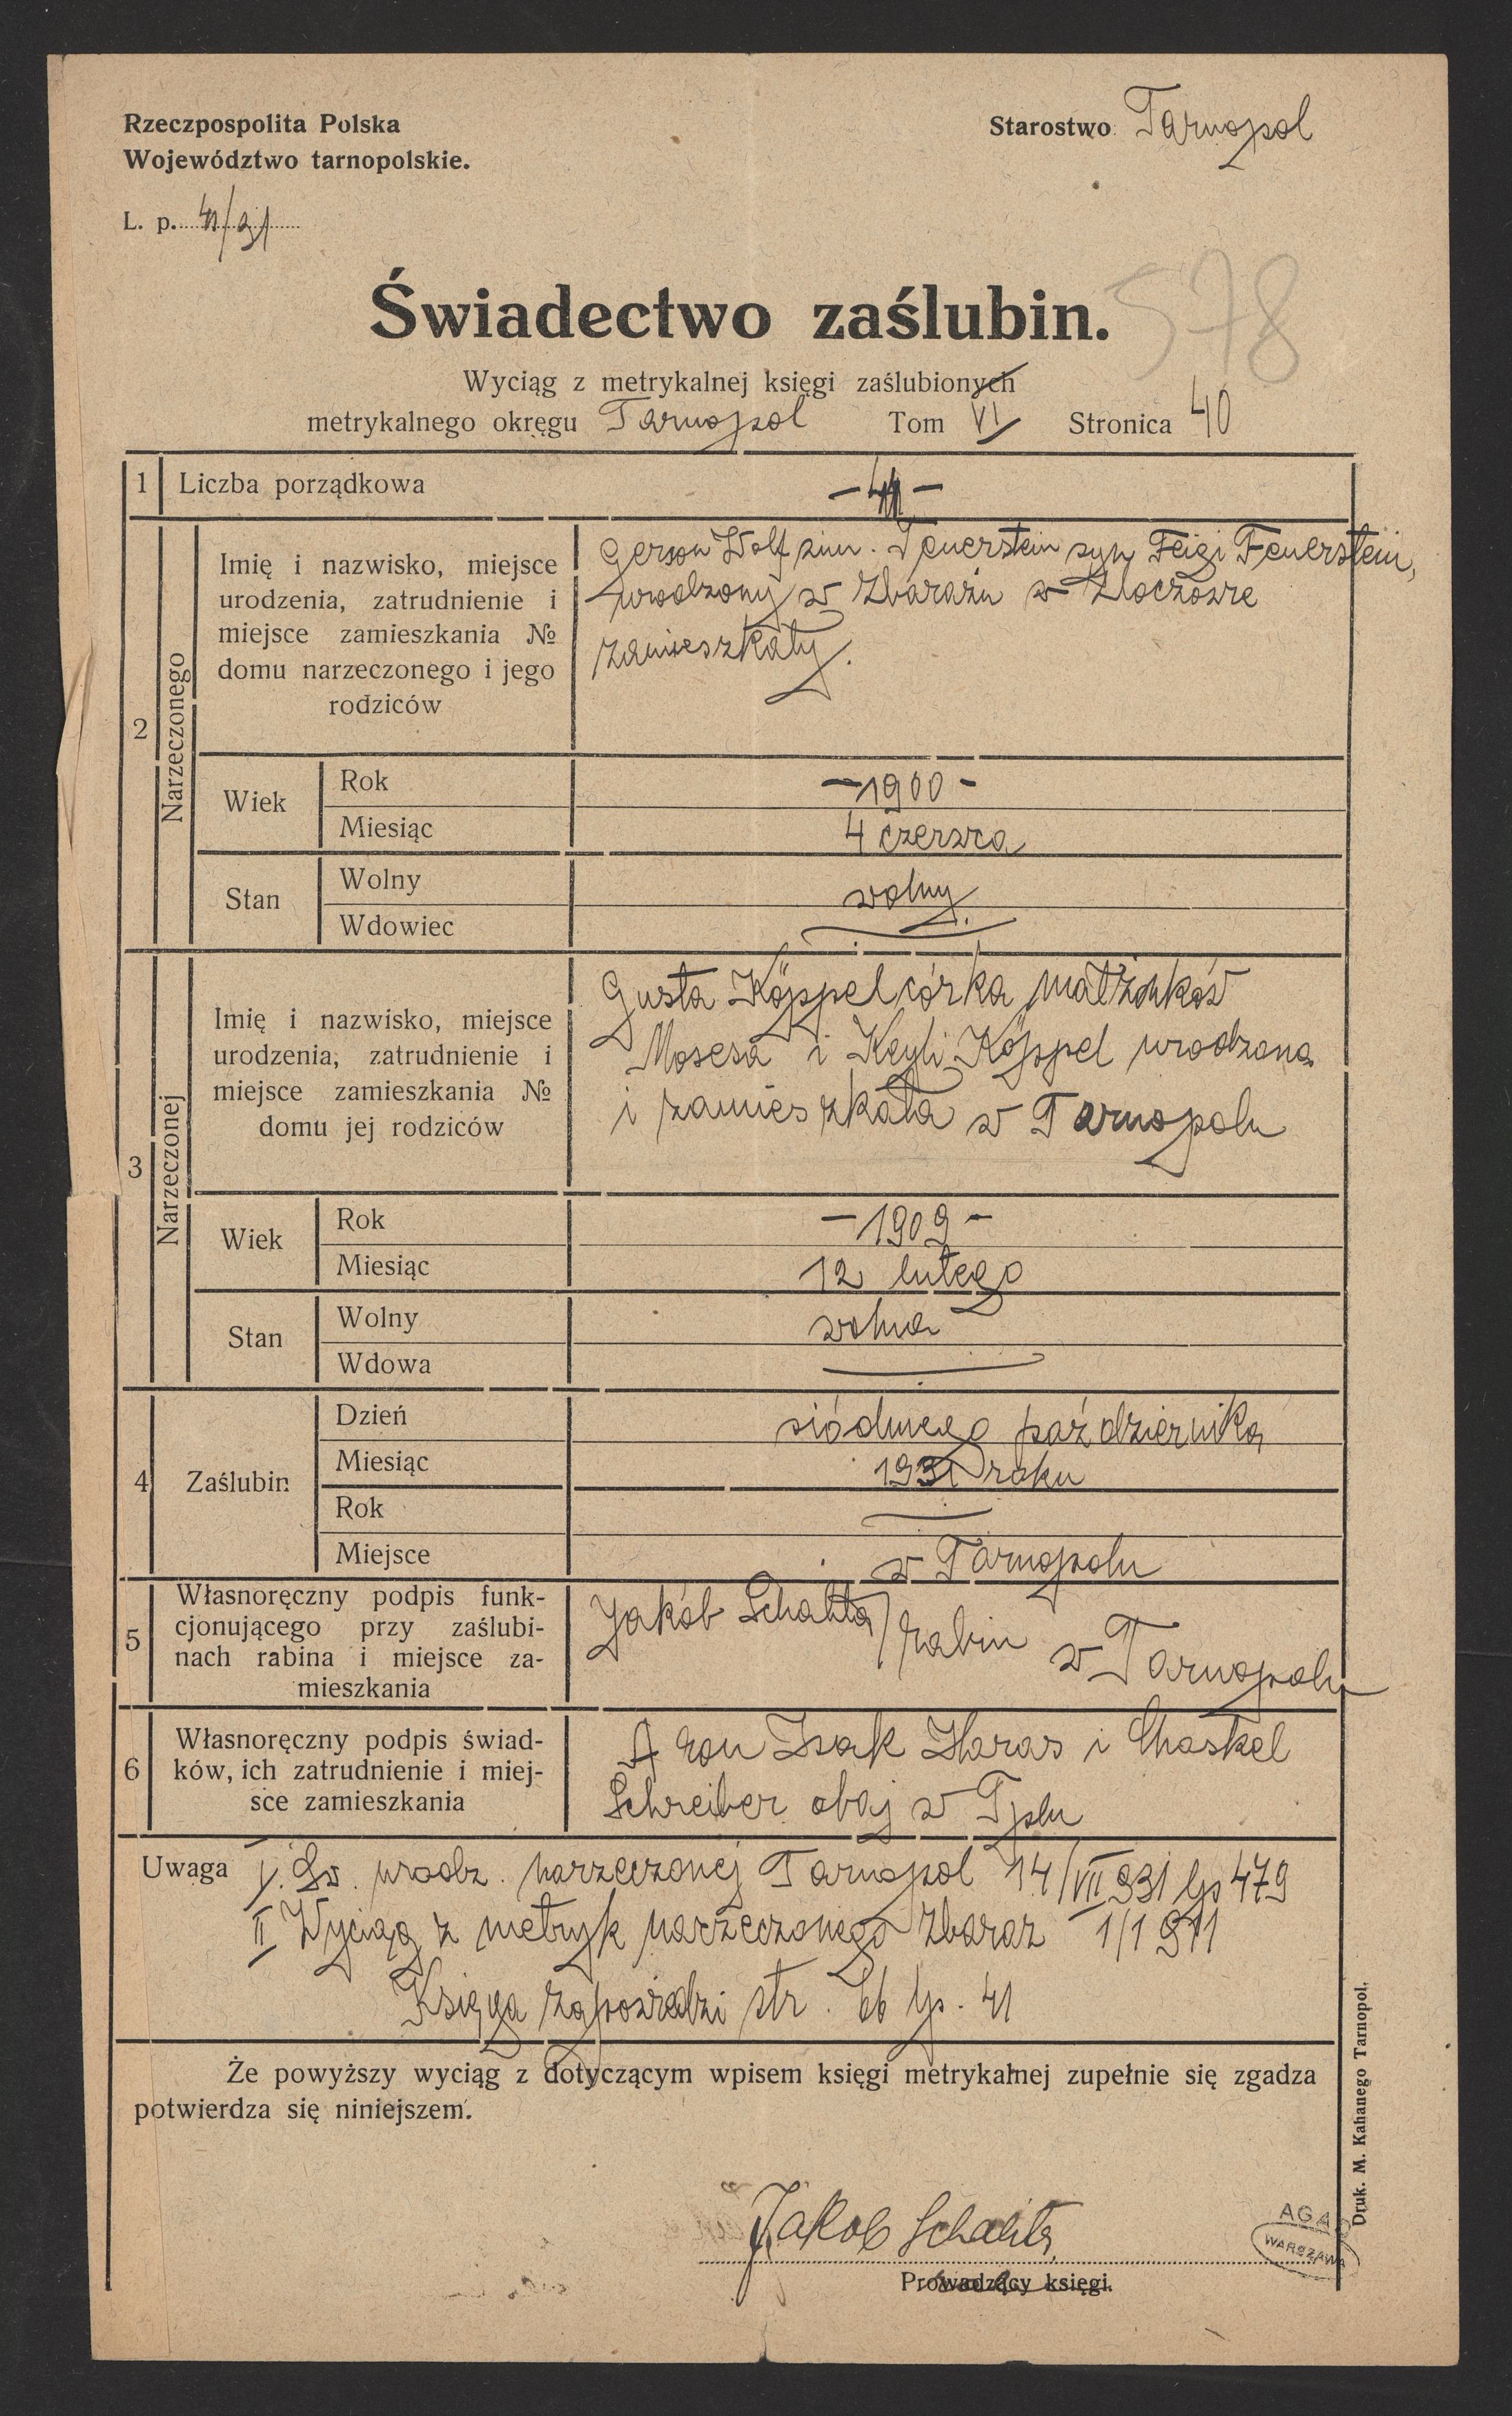 Rzeczpospolita Polska
Województwo tarnopolskie.
Starostwo Tarnopol
L. p. 41/31
578
Świadectwo zaślubin.
Wyciąg z metrykalnej księgi zaślubionych
metrykalnego okręgu Tarnopol Tom VI Stronica 40
1 Liczba porządkowa
— 41 —
2
Narzeczonego
Imię i nazwisko, miejsce
urodzenia, zatrudnienie i
miejsce zamieszkania №
domu narzeczonego i jego
rodziców
Gerson Wolf zim. Feuerstein syn Feigi Feuerstein,
urodzony w Zbarażu w Złoczowie
zamieszkały.
Wiek
Rok
— 1900 —
Miesiąc
4 czerwca
Stan
Wolny
wolny
Wdowiec
3
Narzeczonej
Imię i nazwisko, miejsce
urodzenia, zatrudnienie i
miejsce zamieszkania №
domu jej rodziców
Gusta Köppel córka małżonków
Mosesa i Keyli Köppel urodzona
i zamieszkała w Tarnopolu
Wiek
Rok
— 1909 —
Miesiąc
12 lutego
Stan
Wolny
wolna
Wdowa
4
Zaślubin
Dzień
siódmego października
Miesiąc
1931 roku
Rok
Miejsce
w Tarnopolu
5
Własnoręczny podpis funk-
cjonującego przy zaślubi-
nach rabina i miejsce za-
mieszkania
Jakób Schalita rabin w Tarnopolu
6
Własnoręczny podpis świad-
ków, ich zatrudnienie i miej-
sce zamieszkania
Aron Isak Haras i Chaskel
Schreiber obaj w Tplu
Uwaga I. Św. urodz. narzeczonej Tarnopol 14/VII 931 lp 479
II Wyciąg z metryk narzeczonego Zbaraż 1/1 911
Księga zapowiedzi str. lp. 41
Że powyższy wyciąg z dotyczącym wpisem księgi metrykalnej zupełnie się zgadza
potwierdza się niniejszem.
Jakob Schalita
Prowadzący księgi.
AGAD
WARSZAWA
Druk. M. Kahanego Tarnopol.